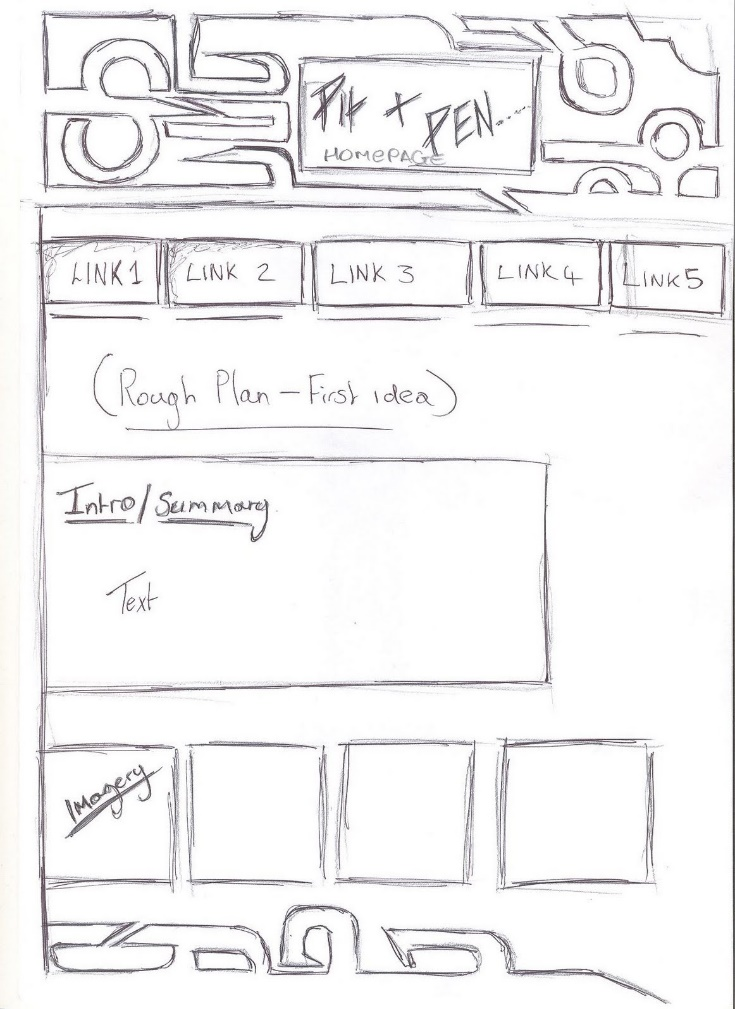 Pit + PEN....
HOMEPAGE
LINK 1 LINK 2 LINK 3 LINK 4 LINK 5
(Rough Plan – First idea)
Intro/Summary
Text
Imagery